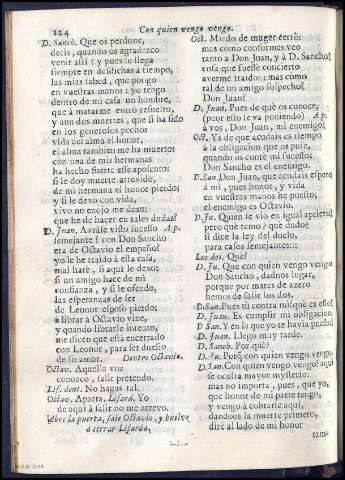 124
Con quien vengo vengo.
D. Sancb. Que os perdone,
decis, quando os agradezco
venir assi? y pues se llega
siempre en desdichas a tiempo,
las mias sabed, que pongo
en vuestras manos: yo tengo
dentro de mi casa un hombre,
que à matarme entrò resuelto,
y aun dos muertes, que si ha sido
en los generosos pechos
vida del alma el honor,
el alma tambien me ha muerto:
con una de mis hermanas
ha hecho fuerte este aposento:
si le doy muerte atrevido,
de mi hermana el honor pierdo;
y si le dexo con vida,
vivo un enojo me dexo:
que he de hacer en tales dudas?
D. Juan. Avràse visto sucesso Ap.
semejante? con Don Sancho
era de Octavio el empeño?
yo le he traido à esta casa,
mal harè, si aqui le dexo:
si un amigo hace de mi
confianza, y si le ofendo,
las esperanzas de ser
de Leonor esposo pierdo:
à librar à Octavio vine,
y quando librarle intento,
me dicen que està encerrado
con Leonor, para ser dueño
de su amor. Dentro Octavio.
Octav. Aquella voz
conozco, salir pretendo.
Lis. dent. No hagas tal.
Octav. Aparta, Lisard. Yo
de aqui à salir no me atrevo.
Abre la puerta, sale Octavio, y buelve
à cerrar Lisardo.
Oct. Miedo de muger cerrò:
mas como conformes veo
tanto a Don Juan, y à D. Sancho?
cosa que fuesse concierto
averme traido: mas como
tal de un amigo sospecho?
Don Juan?
D. Juan. Pues de què os conoce,
(peor esto se va poniendo) Ap.
à vos, Don Juan, mi enemigo?
Oct. Ya de que acudais es tiempo
à la obligacion que os puse,
quando os contè mi sucesso;
Don Sancho es el enemigo.
D. San. Don Juan, que acudais espero
à mi, pues honor, y vida
en vuestras manos he puesto;
el enemigo es Octavio.
D. Ju. Quien se viò en igual aprieto!
pero què temo? què dudo?
si dice la ley del duelo,
para casos semejantes::
Los dos. Què?
D. Ju. Que con quien vengo vengo:
Don Sancho, dadnos lugar,
porque por mares de azero
hemos de salir los dos.
D. San. Pues tù contra mi? què es esto?
D. Juan. Es cumplir mi obligacion
D. San. Y en la que yo te havia puesto?
D. Juan. Llego muy tarde.
D. Sancb. Por què?
D. Ju. Porq̃ con quien vengo vengo.
D. San. Con quien vengo vengo? aqui
se oculta mayor mysterio:
mas no importa, pues, que yo,
que honor de mi parte tengo,
y vengo à cobrarle aqui,
dandoos la muerte primero,
dirè al lado de mi honor